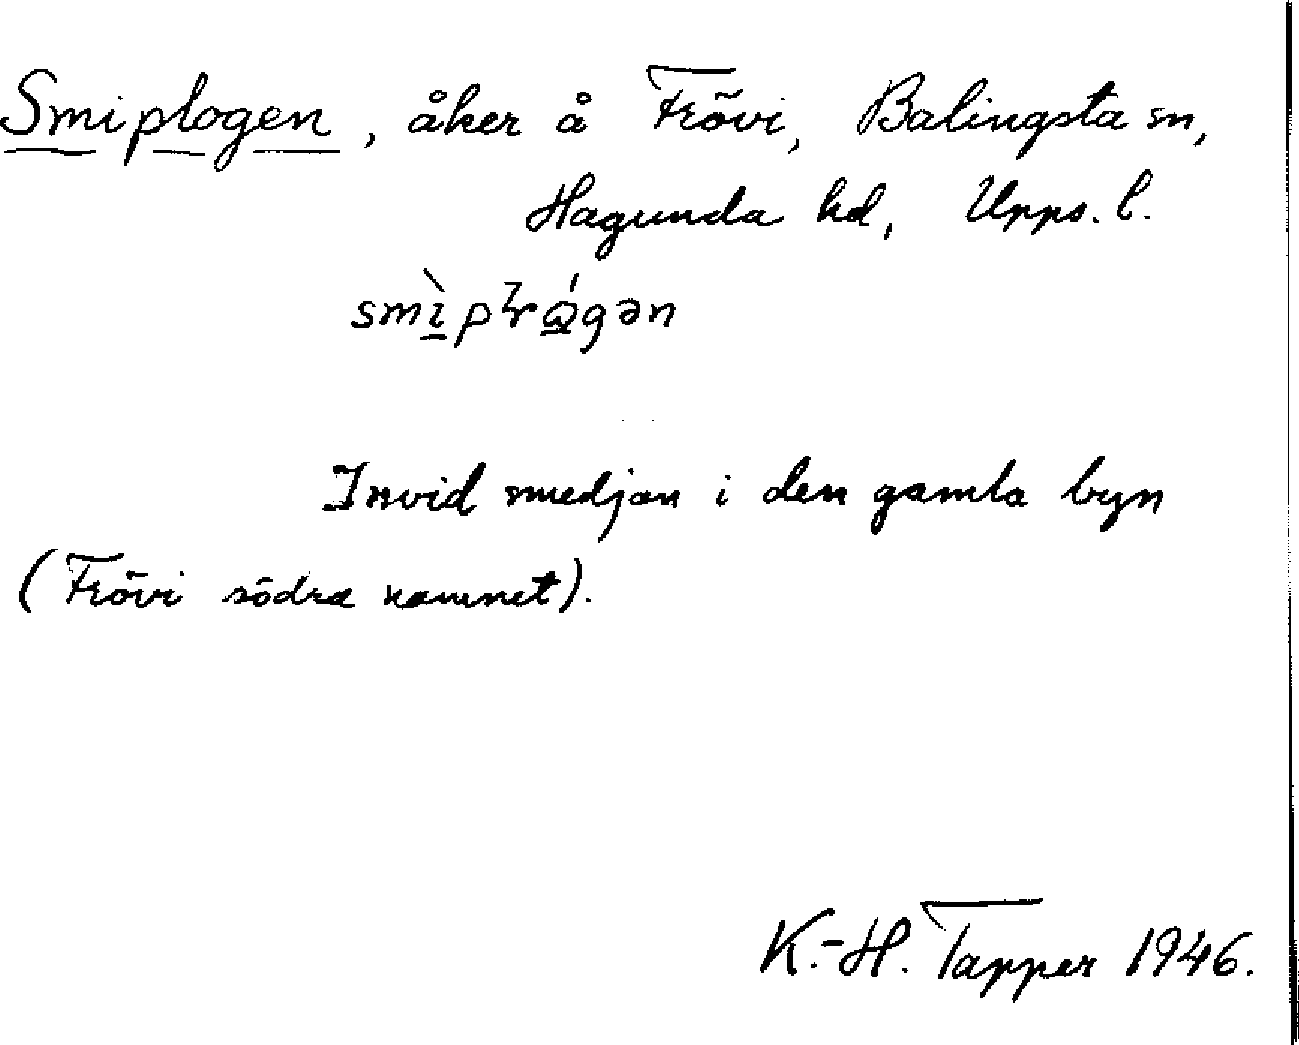 Smiplogen, åker å Frövi, Balingsta sn,
Hagunda hd, Upps. l.
Invid smedjan i den gamla byn
(Frövi södra namnet).
K.-H. Tapper 1946.